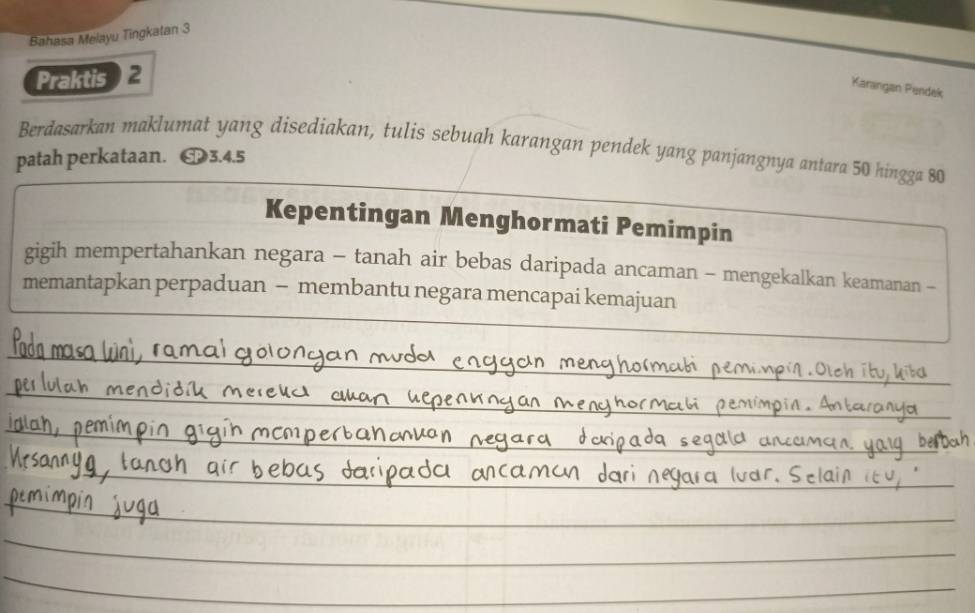 Bahasa Melayu Tingkatan 3
Praktis 2
Karangan Pendek
Berdasarkan maklumat yang disediakan, tulis sebuah karangan pendek yang panjangnya antara 50 hingga 80
patah perkataan. SP 3.4.5
Kepentingan Menghormati Pemimpin
gigih mempertahankan negara – tanah air bebas daripada ancaman – mengekalkan keamanan –
memantapkan perpaduan – membantu negara mencapai kemajuan
Pada masa kini, ramai golongan muda enggan menghormati pemimpin. Oleh itu, kita
perlulah mendidik mereka akan kepentingan menghormati pemimpin. Antaranya
ialah, pemimpin gigih mempertahankan negara daripada segala ancaman. yang
Kesannya, tanah air bebas daripada ancaman dari negara luar. Selain itu,
pemimpin juga